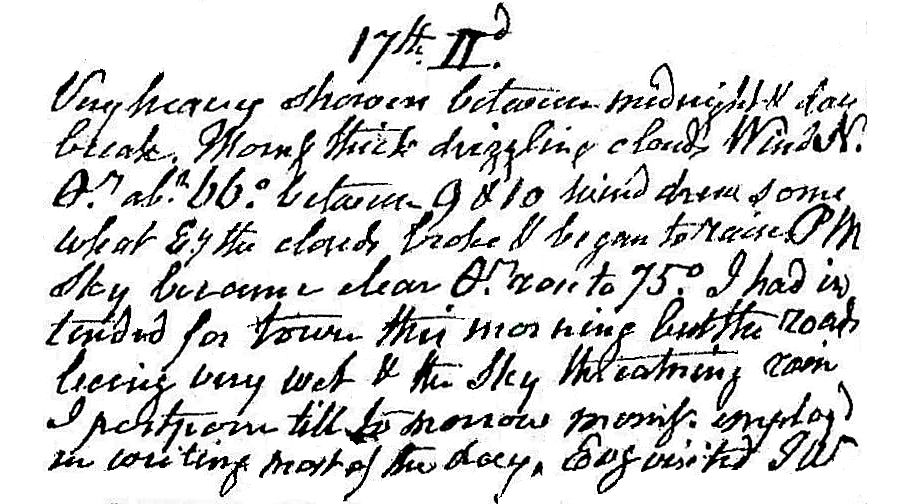 17th IId.
Very heavy shower between midnight & day
break. Morng thick drizzling clouds Wind N.
Ər abt 66° between 9 & 10 wind drew some
what Ey the clouds broke & began to raise PM
Sky became clear Ər rose to 75° I had in
tended for town this morning but the roads
being very wet & the sky threatning rain
I postpone till to morrow morng. employd
in writing most of the day. Evg visited J W